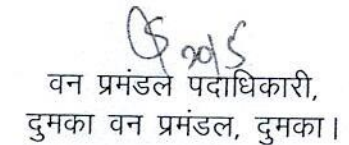 वन प्रमंडल पदाधिकारी,
दुमका वन प्रमंडल, दुमका।